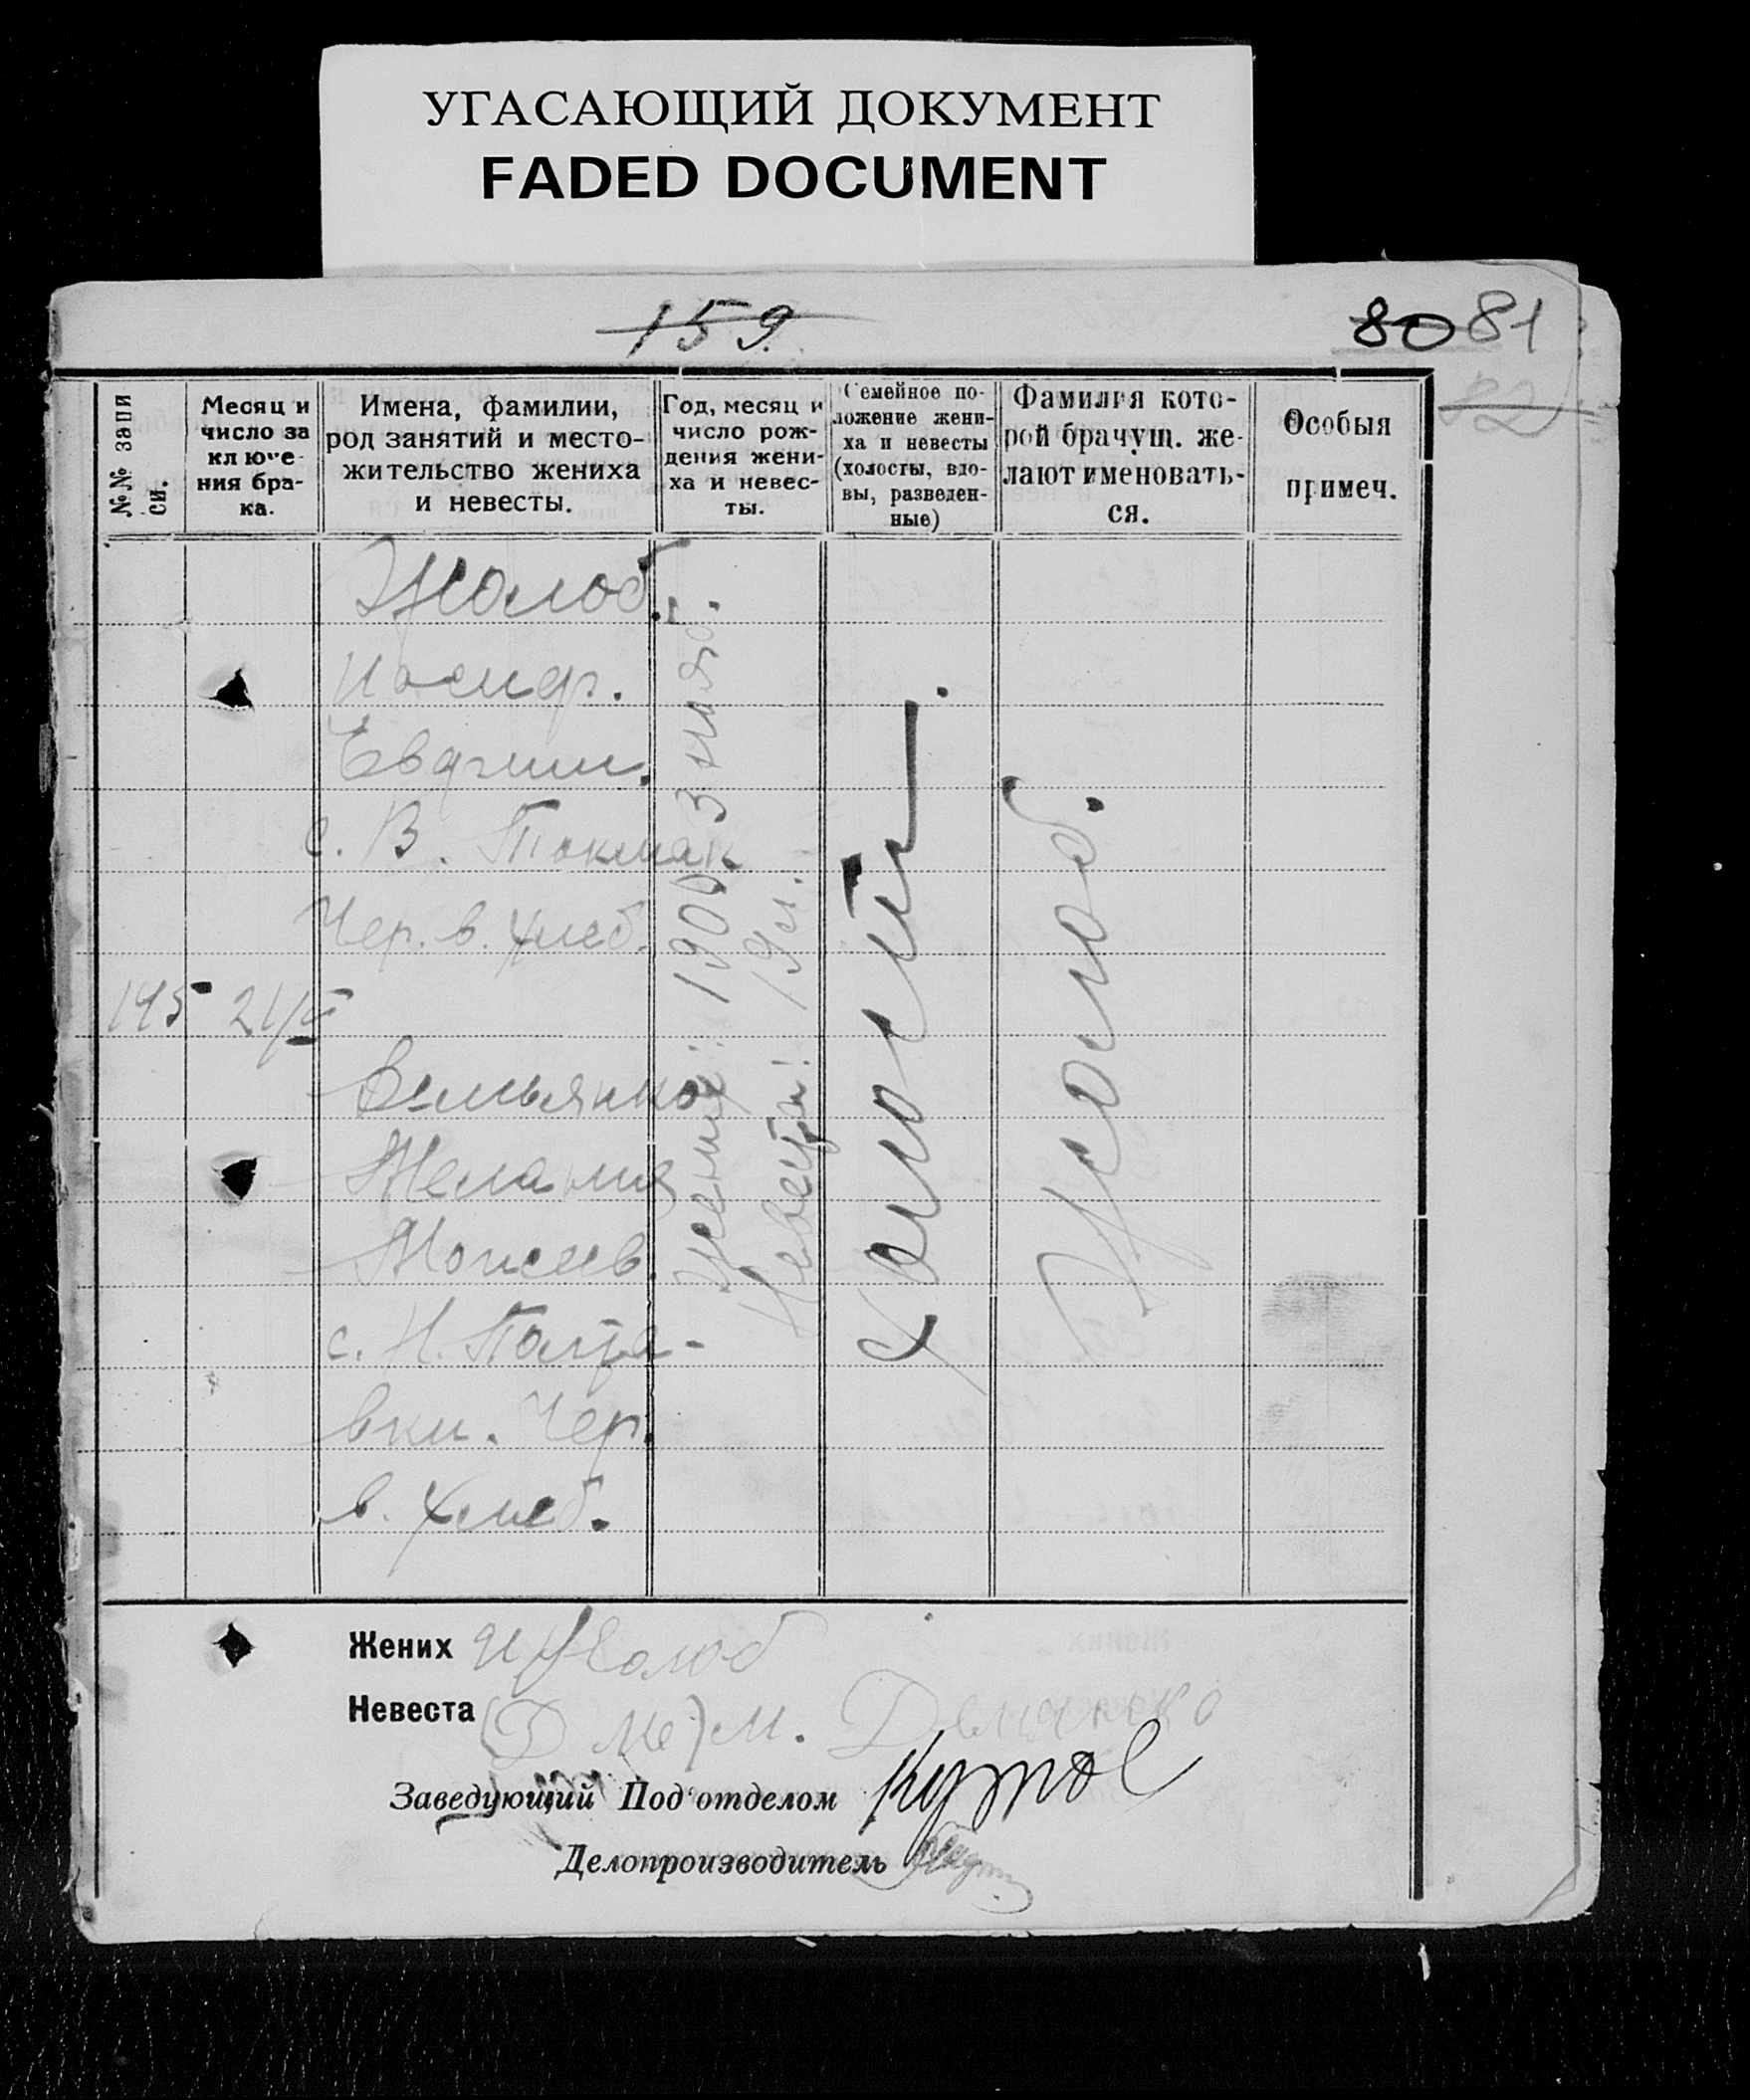 УГАСАЮЩИЙ ДОКУМЕНТ
FADED DOCUMENT
159.
80 81
82
№№ запи
си.
Месяц и
число за
ключе-
ния бра-
ка.
Имена, фамилии,
род занятий и место-
жительство жениха
и невесты.
Год, месяц и
число рож-
дения жени-
ха и невес-
ты.
Семейное по-
ложение жени-
ха и невесты
(холосты, вдо-
вы, разведен-
ные)
Фамилия кото-
рой брачущ. же-
лают именовать-
ся.
Особыя
примеч.
Жолоб.
Иосиф.
с. В. Токмак
Чер. в. хлеб.
145 21/
Мелания
Моисеев.
с. Н. Полта-
вки. Чер.
в. хлеб.
Жених: 1900
Невеста: 19 л.
Холостые
Жолоб.
Жених И Жолоб
Невеста м. Демянко
Заведующий Подотделом
Делопроизводитель